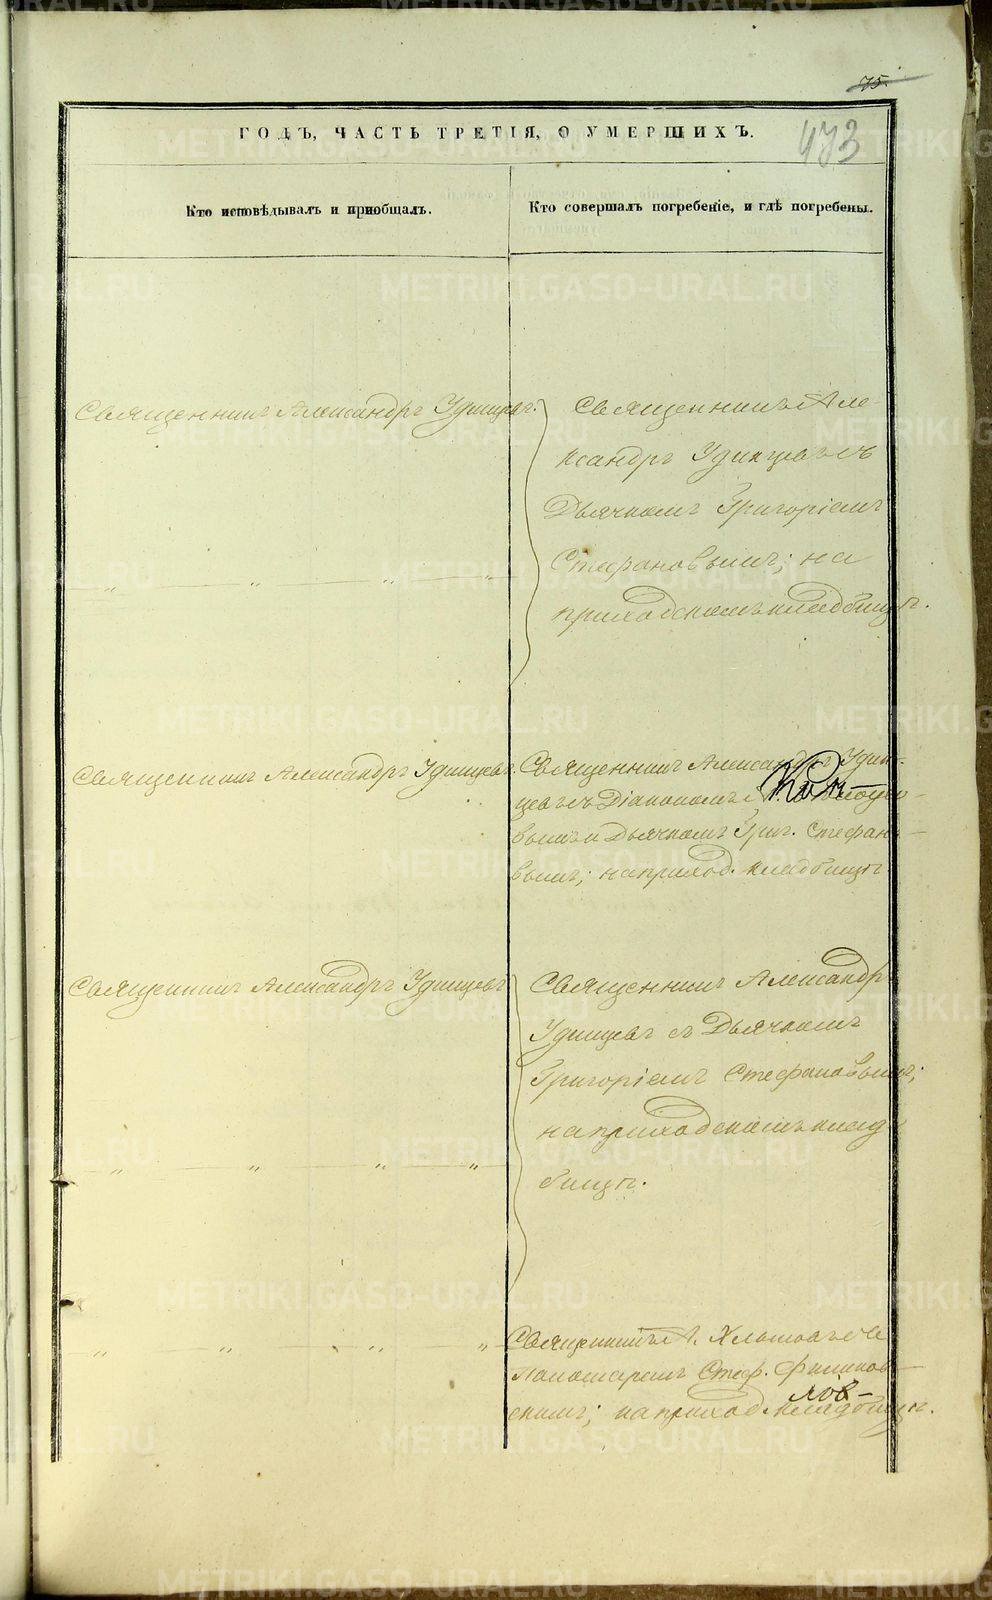 75.
473
ГОДЪ, ЧАСТЬ ТРЕТІЯ, О УМЕРШИХЪ.
Кто исповѣдывалъ и пріобщалъ.
Кто совершалъ погребеніе, и гдѣ погребены.
Священникъ Александръ Удинцевъ.
Священникъ Але-
ксандръ Удинцевъ съ
Дьячкомъ Григоріемъ
Стефановымъ; на
приходскомъ кладбищѣ.
Священникъ Александръ Удинцевъ.
Священникъ Александръ Удин-
цевъ съ Діакономъ
вымъ и Дьячкомъ Григ. Стефано-
вымъ; на приход. кладбищѣ.
Священникъ Александръ Удинцевъ
Священникъ Александръ
Удинцевъ съ Дьячкомъ
Григоріемъ Стефановымъ;
на приходскомъ клад-
бищѣ.
Священникъ А. Хлыновъ съ
Пономаремъ Стеф.
скимъ; на приход. кладбищѣ.
METRIKI.GASO-URAL.RU